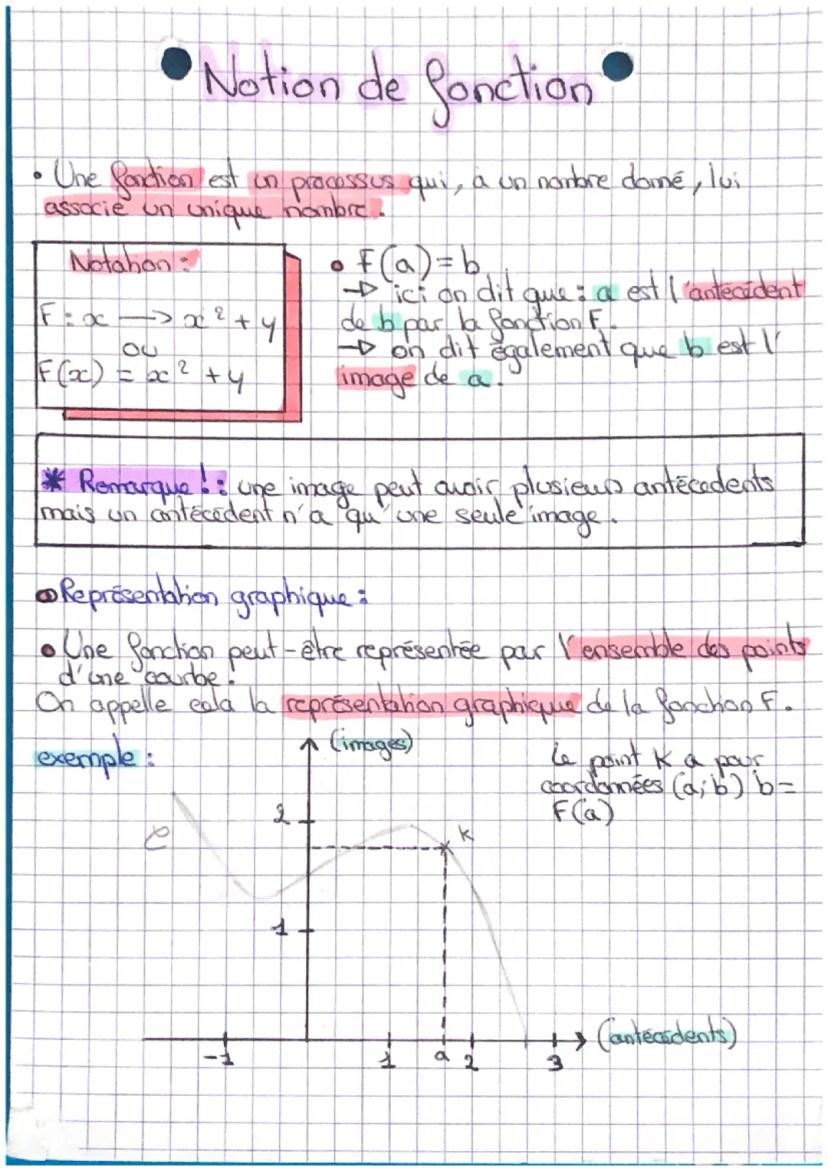 Notion de fonction
• Une fonction est un processus qui, à un nombre donné, lui
associe un unique nombre.
Notation :
F : x → x² + 4
ou
F(x) = x² + 4
• F(a) = b
→ ici on dit que : a est l'antécédent
de b par la fonction F.
→ on dit également que b est l'
image de a.
* Remarque ! : une image peut avoir plusieurs antécédents
mais un antécédent n'a qu'une seule image.
Représentation graphique :
• Une fonction peut-être représentée par l'ensemble des points
d'une courbe.
On appelle cela la représentation graphique de la fonction F.
exemple :
(images)
Le point K a pour
coordonnées (a;b) b=
F(a)
2
K
C
1
(antécédents)
-1 1 a 2 3